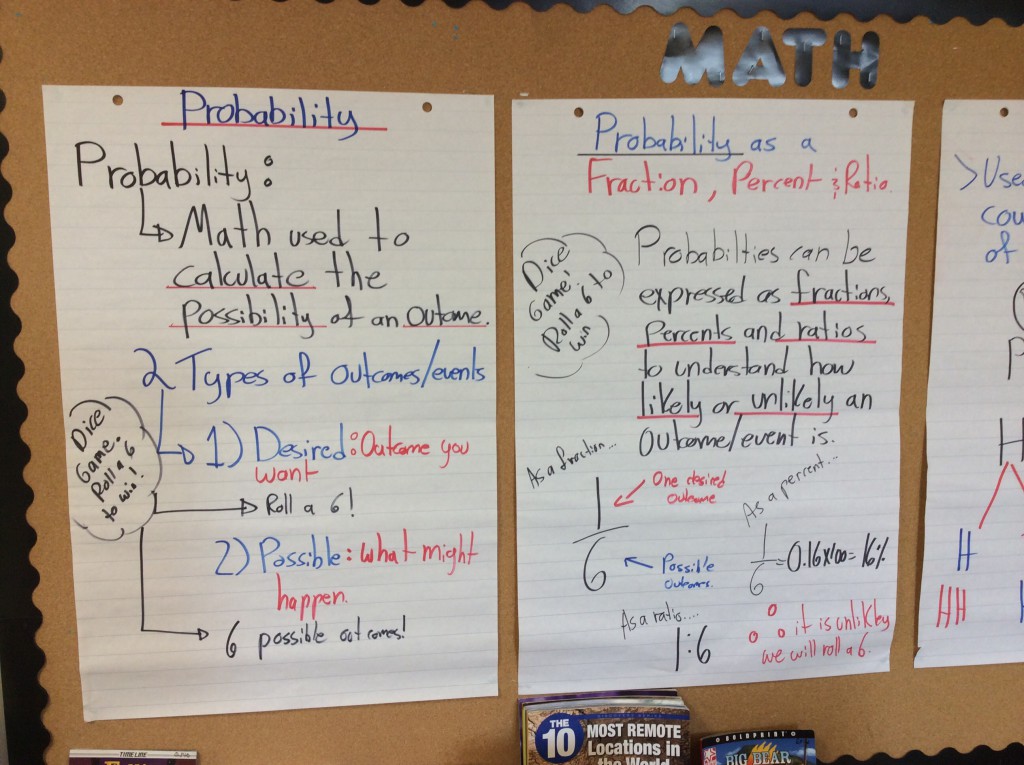 MATH
Probability
Probability:
Math used to
calculate the
Possibility of an Outcome.
2 Types of Outcomes/events
Dice
Game.
Roll a 6
to win!
1) Desired: Outcome you
want
Roll a 6!
2) Possible: what might
happen.
6 possible outcomes!
Probability as a
Fraction, Percent & Ratio
Dice
Game!
Roll a 6 to
win
Probabilties can be
expressed as fractions,
Percents and ratios
to understand how
likely or unlikely an
Outcome/event is.
As a fraction...
1
6
One desired
outcome
Possible
Outcomes.
As a percent...
1
6
=0.16x100=16%
As a ratio....
1:6
∴ it is unlikley
we will roll a 6.
>Use
cou
of
P
H
H
HH
TIMELINE
THE
10
MOST REMOTE
Locations in
the World
BOLDPRINT
BIG BEAR